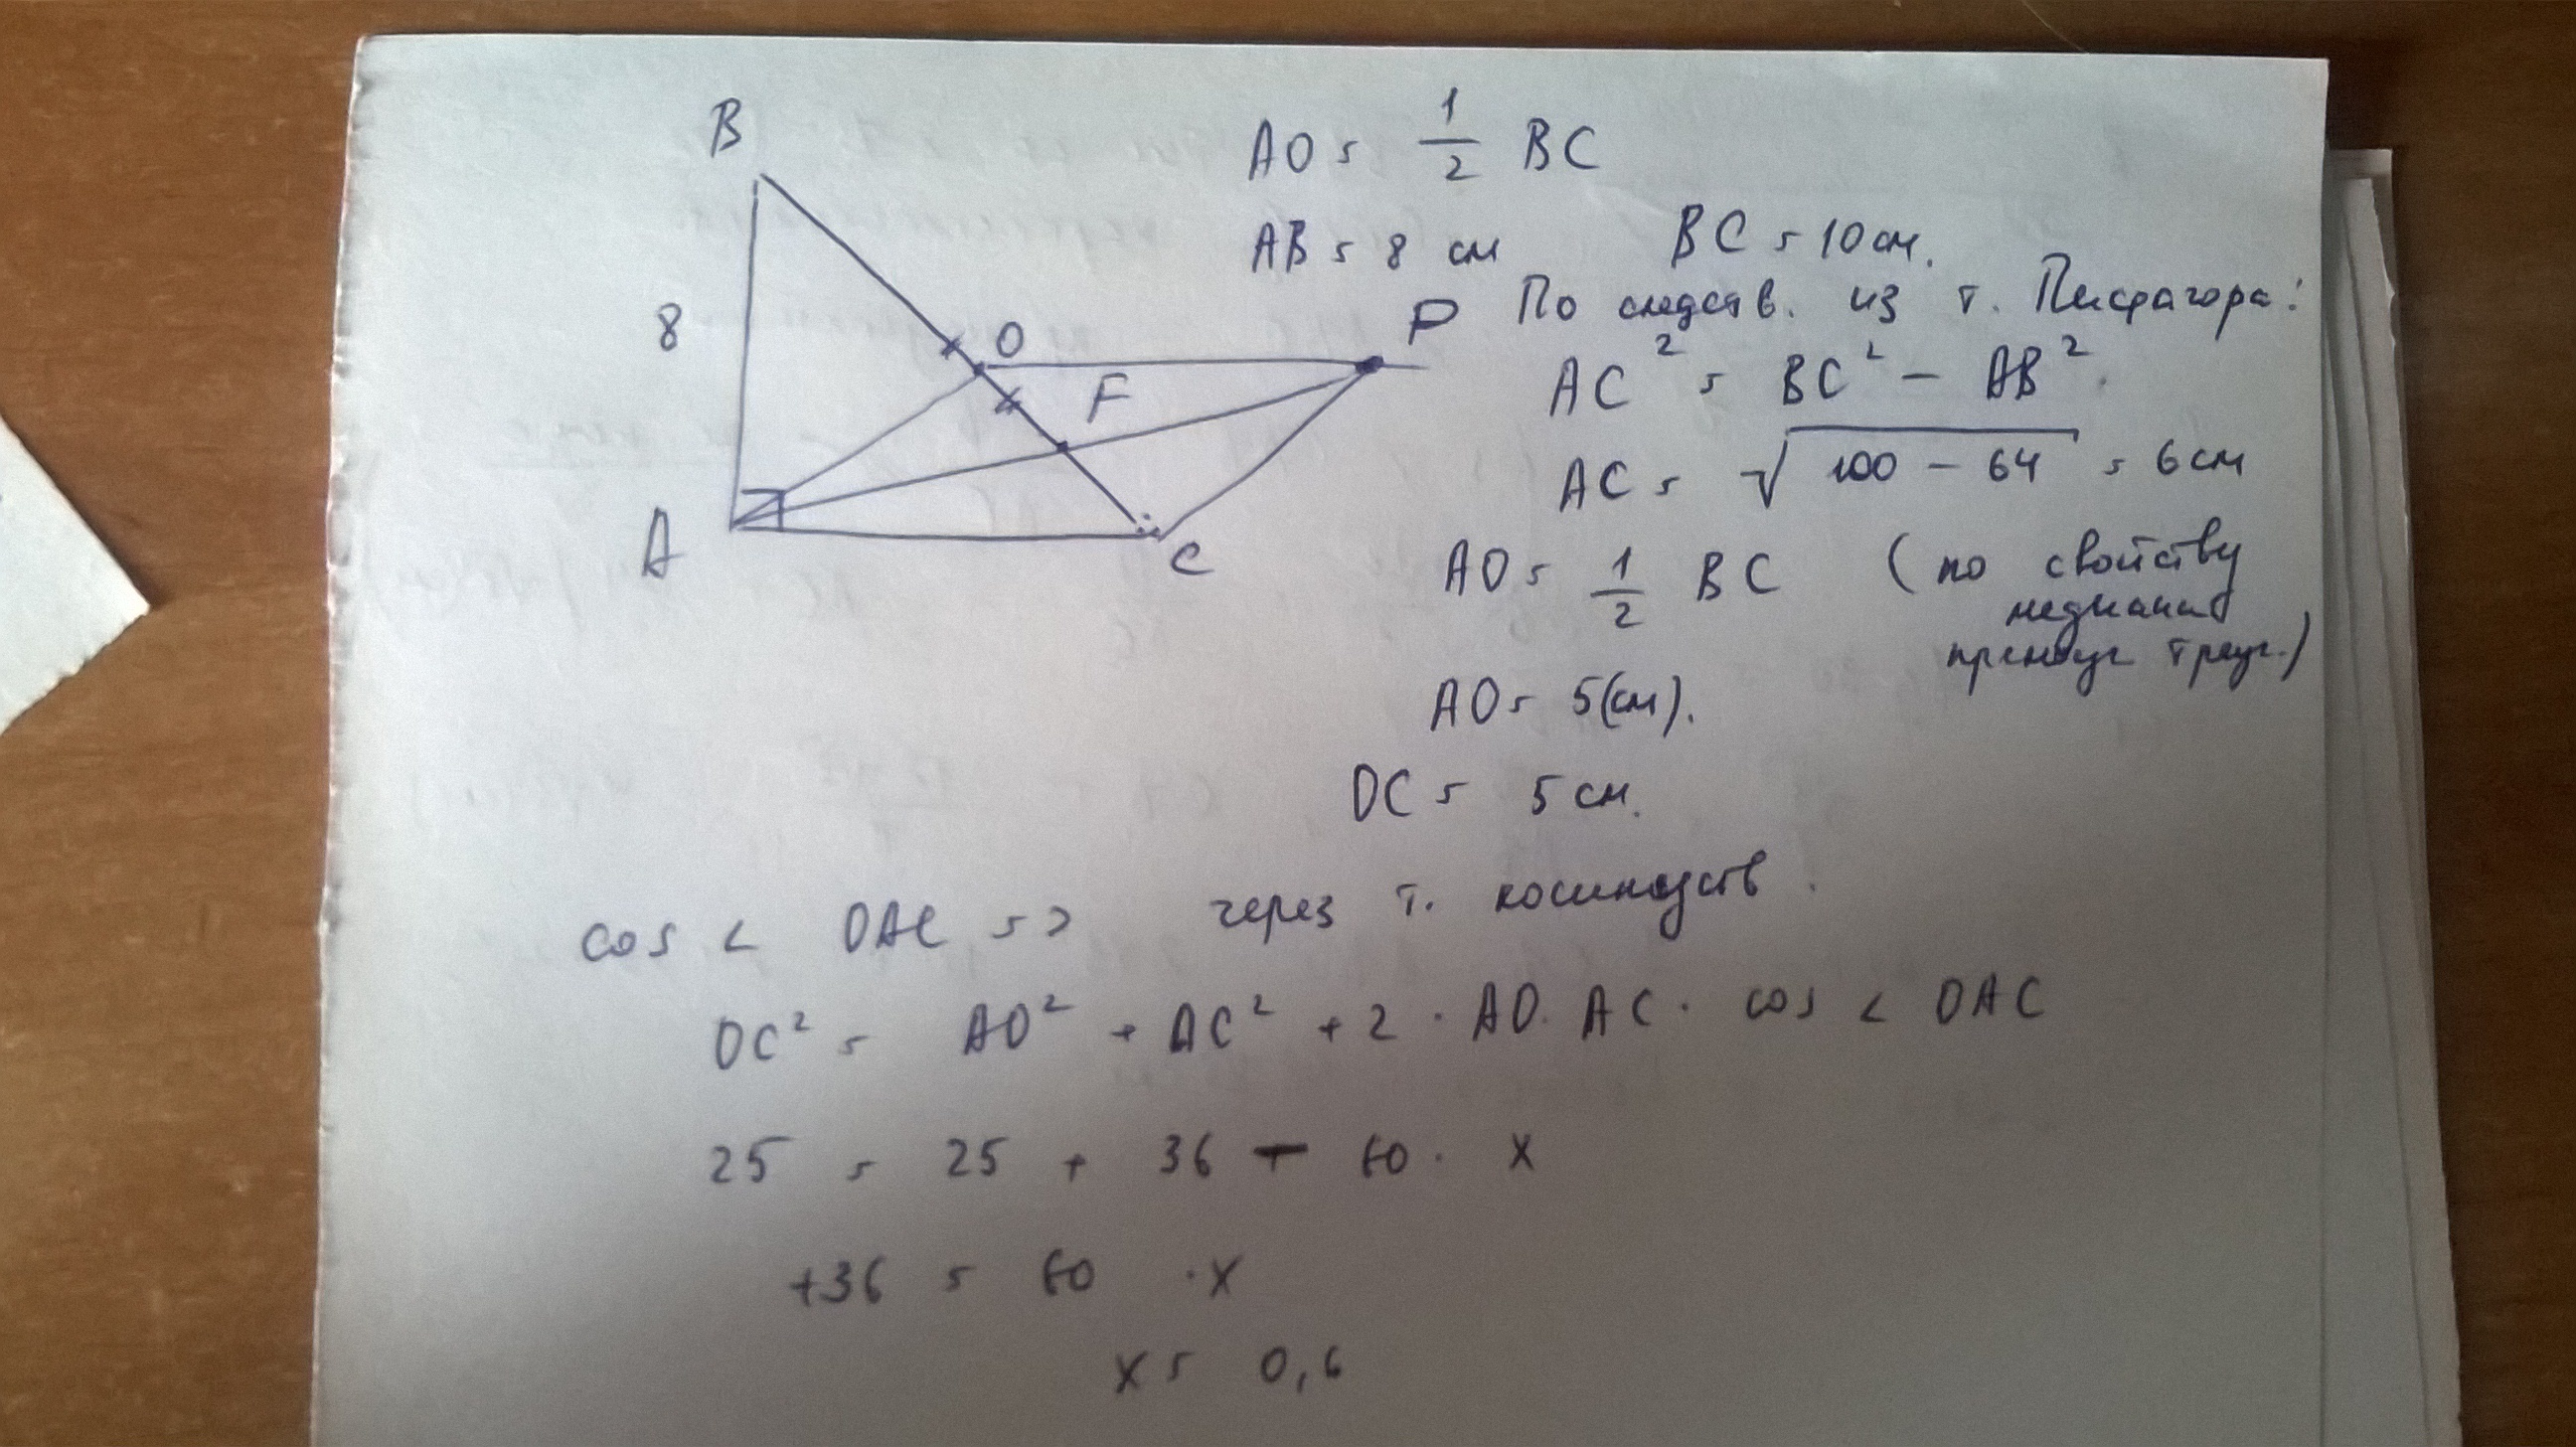 B
8
O
F
P
A
C
AO = 1/2 BC
AB = 8 см BC = 10 см.
По следств. из т. Пифагора:
AC² = BC² - AB².
AC = √100 - 64 = 6 см
AO = 1/2 BC (по свойству
медианы
прямоуг треуг.)
AO = 5 (см).
OC = 5 см.
cos < OAC => через т.
OC² = AO² + AC² + 2 · AO · AC · cos < OAC
25 = 25 + 36 - 60 · x
+36 = 60 · x
x = 0,6